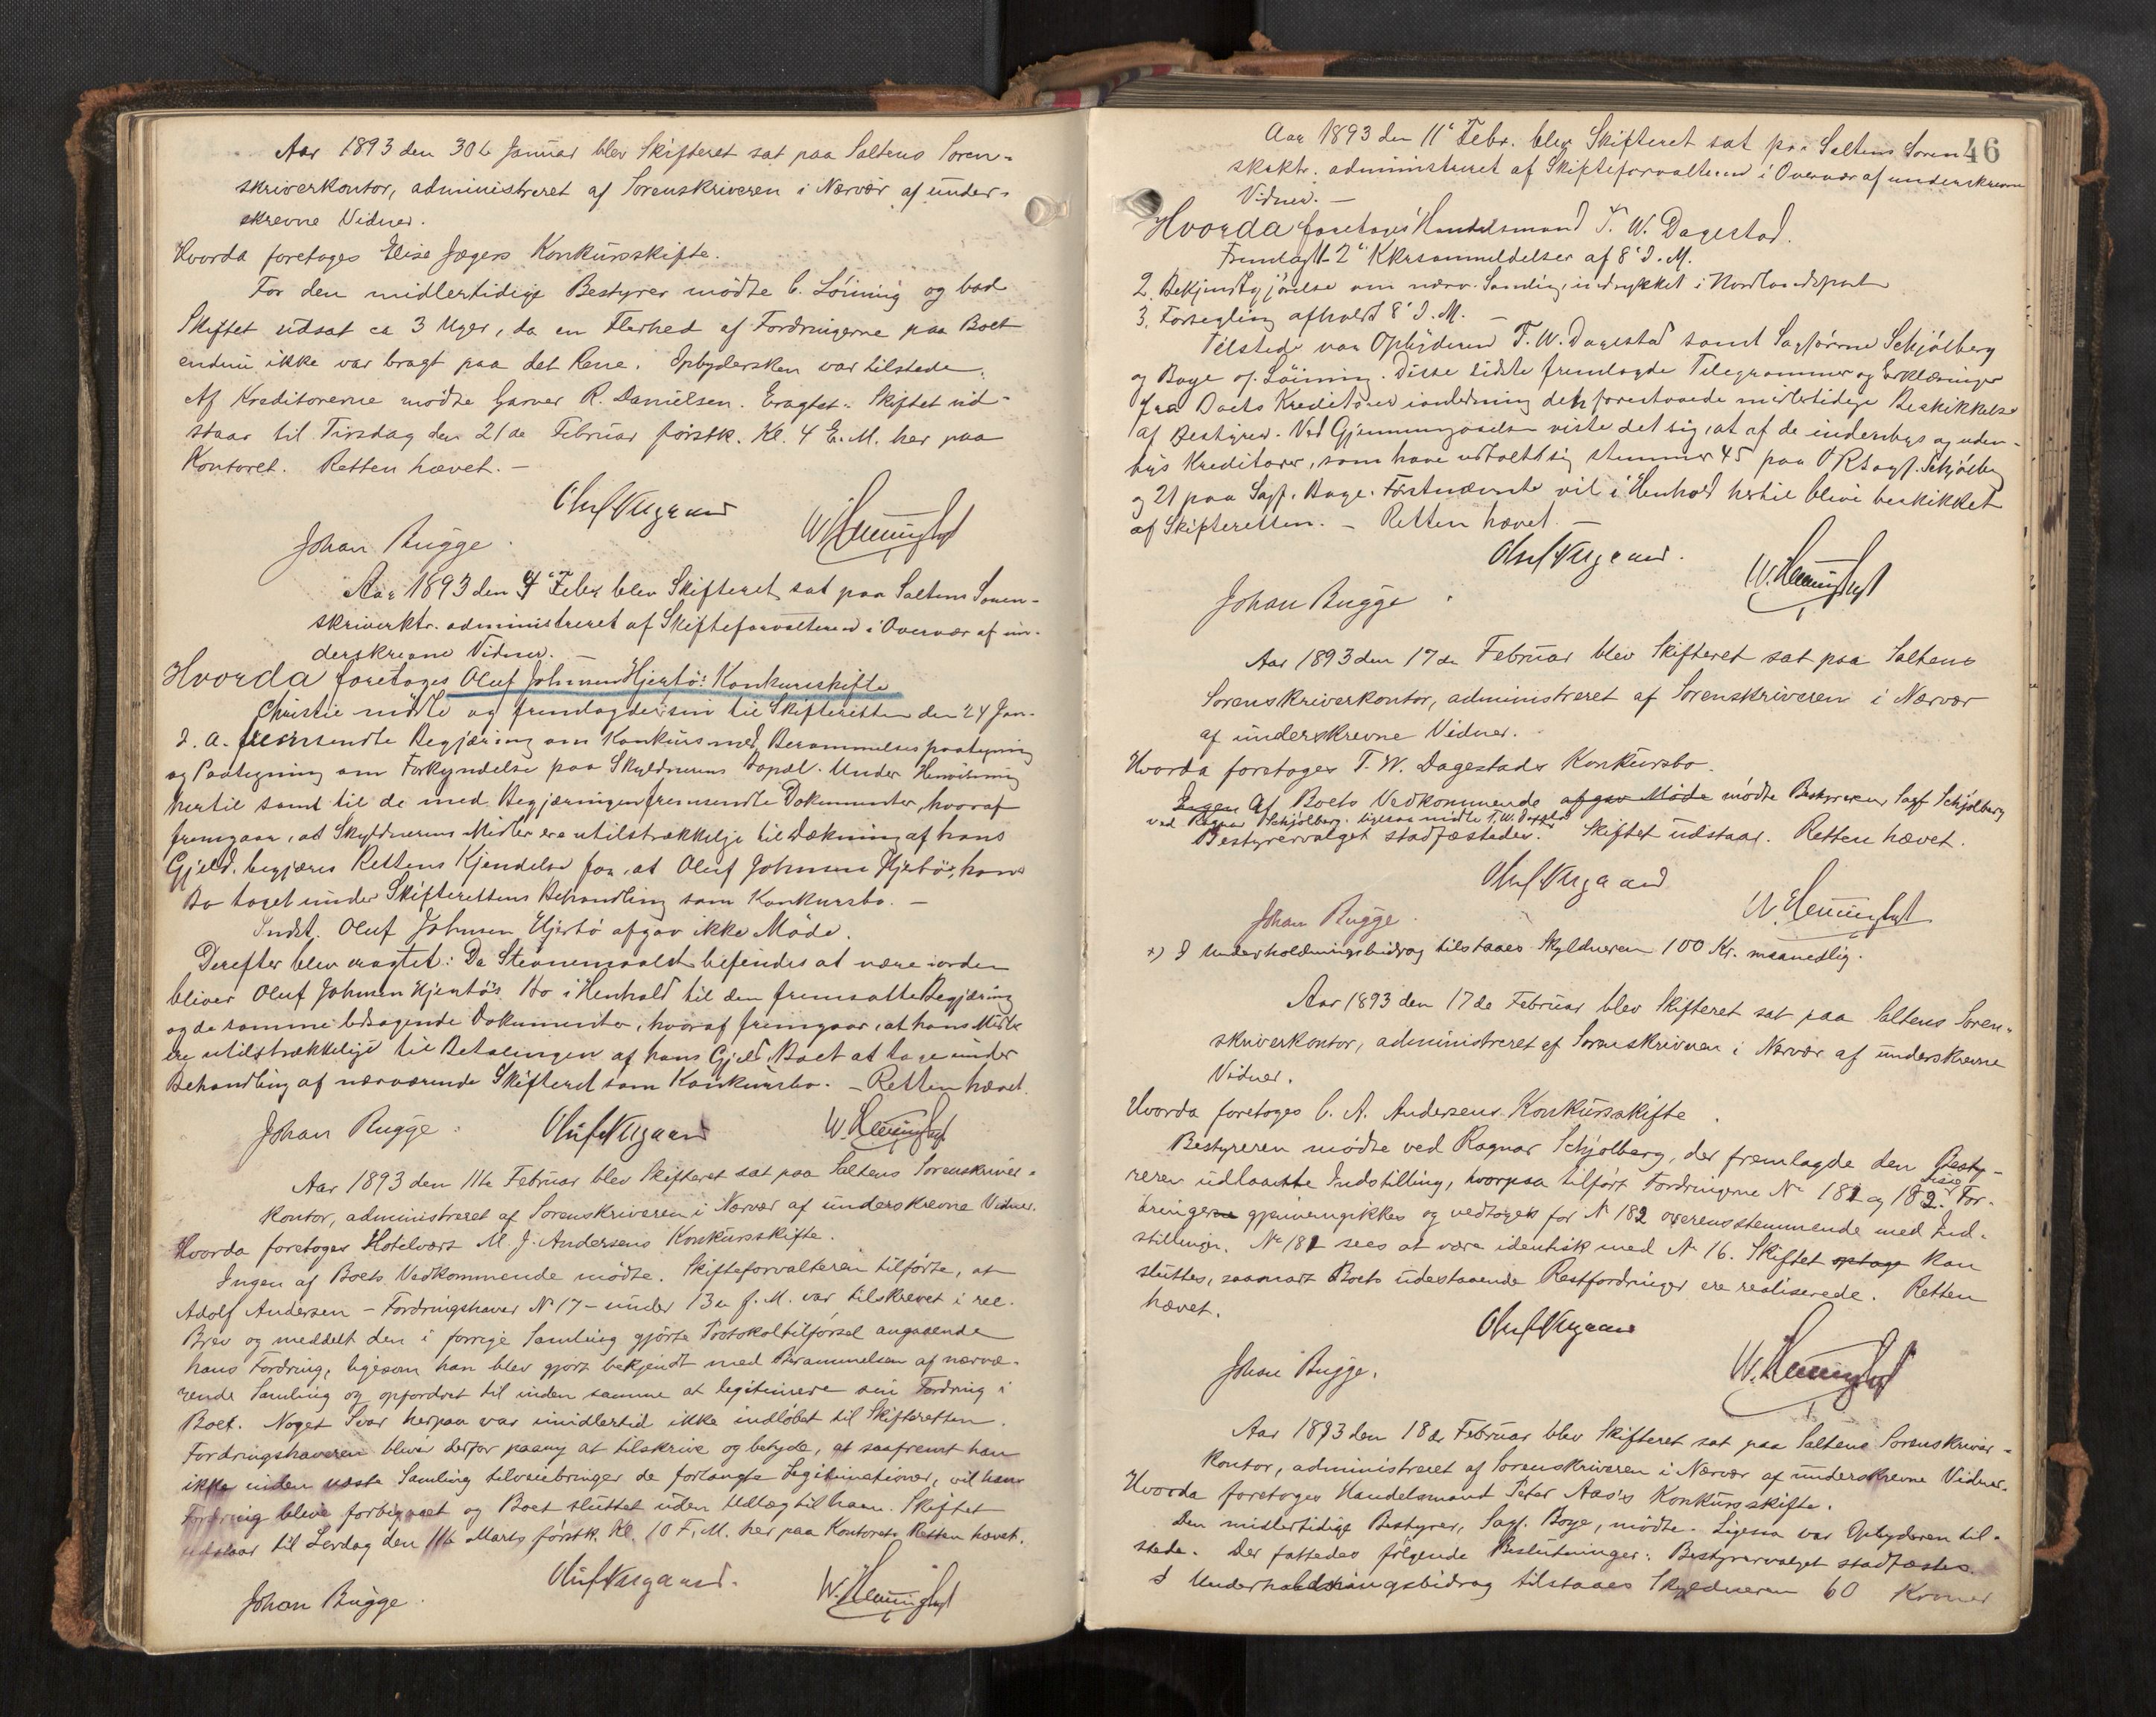 Aar 1893 den 30te Januar blev Skifteret sat paa Saltens Soren-
skriverkontor, administreret af Sorenskriveren i Nærvær af under-
skrevne Vidner.
Hvorda foretoges Elise Jægers Konkursskifte.
For den midlertidige Bestyrer mødte C. Löining og bad
Skiftet udsat ca 3 Uger, da en Flerhed af Fordringerne paa Boet
endnu ikke var bragt paa det Rene. Opbydersken var tilstede.
Af Kreditorerne mødte Garver R. Danielsen. Eragtet: Skiftet ud-
staar til Tirsdag den 21de Februar førstk. Kl. 4 E.M. her paa
Kontoret. Retten hævet. -
Johan Bugge.
Aar 1893 den 4' Febr blev Skifteret sat paa Saltens Soren-
skriverktr. administreret af Skifteforvalteren i Overvær af un-
derskrevne Vidner. -
Hvorda foretoges Oluf Johnsen Hjertø's Konkursskifte
Christie mødte og fremlagde sin til Skifteretten den 24 Jan-
d. A. fremsendte Begjæring om Konkurs med Berammelsespaategning
og Paategning om Forkyndelse paa Skyldnerens Bopæl. Under Henvisning
hertil samt til de med Begjæringen fremsendte Dokumenter, hvoraf
fremgaar, at Skyldnerens Midler ere utilstrækkelige til Dækning af hans
Gjeld, begjæres Rettens Kjendelse for, at Oluf Johnsen Hjertø's, hans
Bo taget under Skifterettens Behandling som Konkursbo. -
Indst. Oluf Johnsen Hjertø afgav ikke Møde.
Derefter blev eragtet: Da Stevnemaalet befindes at være i orden
bliver Oluf Johnsen Hjertø's Bo i Henhold til den fremsatte Begjæring
og de samme ledsagende Dokumenter, hvoraf fremgaar, at hans Midler
ere utilstrækkelige til Betalingen af hans Gjeld, Boet at tage under
Behandling af nærværende Skifteret som Konkursbo. - Retten hævet.
Johan Bugge.
Aar 1893 den 11te Februar blev Skifteret sat paa Saltens Sorenskriver-
kontor, administreret af Sorenskriveren i Nærvær af underskrevne Vidner.
Hvorda foretoges Hotelvært M. J. Andersens Konkursskifte.
Ingen af Boets Vedkommende mødte. Skifteforvalteren tilførte, at
Adolf Andersen - Fordringshaver No 17 - under 13de f. M. var tilskrevet i rec.
Brev og meddelt den i forrige Samling gjorte Protokoltilførsel angaaende
hans Fordring, ligesom han blev gjort bekjendt med Berammelsen af nærvæ-
rende Samling og opfordret til inden samme at legitimere sin Fordring i
Boet. Noget Svar herpaa var imidlertid ikke indløbet til Skifteretten.
Fordringshaveren bliver derfor paany at tilskrive og betyde, at saafremt han
ikke inden næste Samling tilveiebringer de forlangte Legitimationer, vil hans
Fordring blive forbigaaet og Boet sluttet uden Udlæg til ham. Skiftet
udstaar til Lørdag den 11te Marts førstk. Kl. 10 F.M. her paa Kontoret. Retten hævet.
Johan Bugge.
46
Aar 1893 den 11' Febr. blev Skifteret sat paa Saltens Soren
skrktr. administreret af Skifteforvalteren i Overvær af underskrevne
Vidner. -
Hvorda foretoges Handelsmand T. W. Dagestad.
Fremlagt 2 af 8' d. M.
2. Bekjendtgjørelse om nærv. Samling, indrykket i Nordlandspost
3. Forsegling afholdt 8' d. M. -
Tilstede var Opbyderen T. W. Dagestad samt Sagførerne Schjølberg
og Boye og Löining. Disse sidste fremlagde Telegrammer og Erklæringer
fra Boets Kreditorer i anledning den forestaaende midlertidige Beskikkelse
af Bestyrer. Ved Gjennemgaaelsen viste det sig, at af de indenbys og uden-
bys Kreditorer, som have udtalt sig stemmer 45 paa ORsagf. Schjølberg
og 21 paa Sagf. Boye. Førstnævnte vil i Henhold hertil blive beskikket
af Skifteretten. - Retten hævet. -
Johan Bugge.
Aar 1893 den 17de Februar blev Skifteret sat paa Saltens
Sorenskriverkontor, administreret af Sorenskriveren i Nærvær
af underskrevne Vidner.
Hvorda foretoges T. W. Dagestads Konkursbo.
Ingen Af Boets Vedkommende afgav Møde mødte Bestyreren, Sagf Schjølberg
ved Ragnar Schjølberg. ligesaa mødte T. W. Dagestad
Bestyrervalget stadfæstedes. Skiftet udstaar. Retten hævet.
Johan Bugge.
x) I Underholdningsbidrag tilstaaes Skyldneren 100 Kr. maanedlig.
Aar 1893 den 17de Februar blev Skifteret sat paa Saltens Soren-
skriverkontor, administreret af Sorenskriveren i Nærvær af underskrevne
Vidner.
Hvorda foretoges C. A. Andersens Konkursskifte.
Bestyreren mødte ved Ragnar Schjølberg, der fremlagde den Besty-
reren udlaante Indstilling, hvorpaa tilført Fordringerne No 181 og 182. Disse For-
dringerne gjennemgikkes og vedtoges for No 182 overensstemmende med Ind-
stillingen. No 181 sees at være identisk med No 16. Skiftet optage kan
sluttes, saasnart Boets udestaaende Restfordringer ere realiserede. Retten
hævet.
Johan Bugge.
Aar 1893 den 18de Februar blev Skifteret sat paa Saltens Sorenskriver-
kontor, administreret af Sorenskriveren i Nærvær af underskrevne Vidner.
Hvorda foretoges Handelsmand Peter Aas's Konkursskifte.
Den midlertidige Bestyrer, Sagf. Boye, mødte. Ligesaa var Opbyderen til-
stede. Der fattedes følgende Beslutninger: Bestyrervalget stadfæstes.
I Underholdningsbidrag tilstaaes Skyldneren 60 Kroner